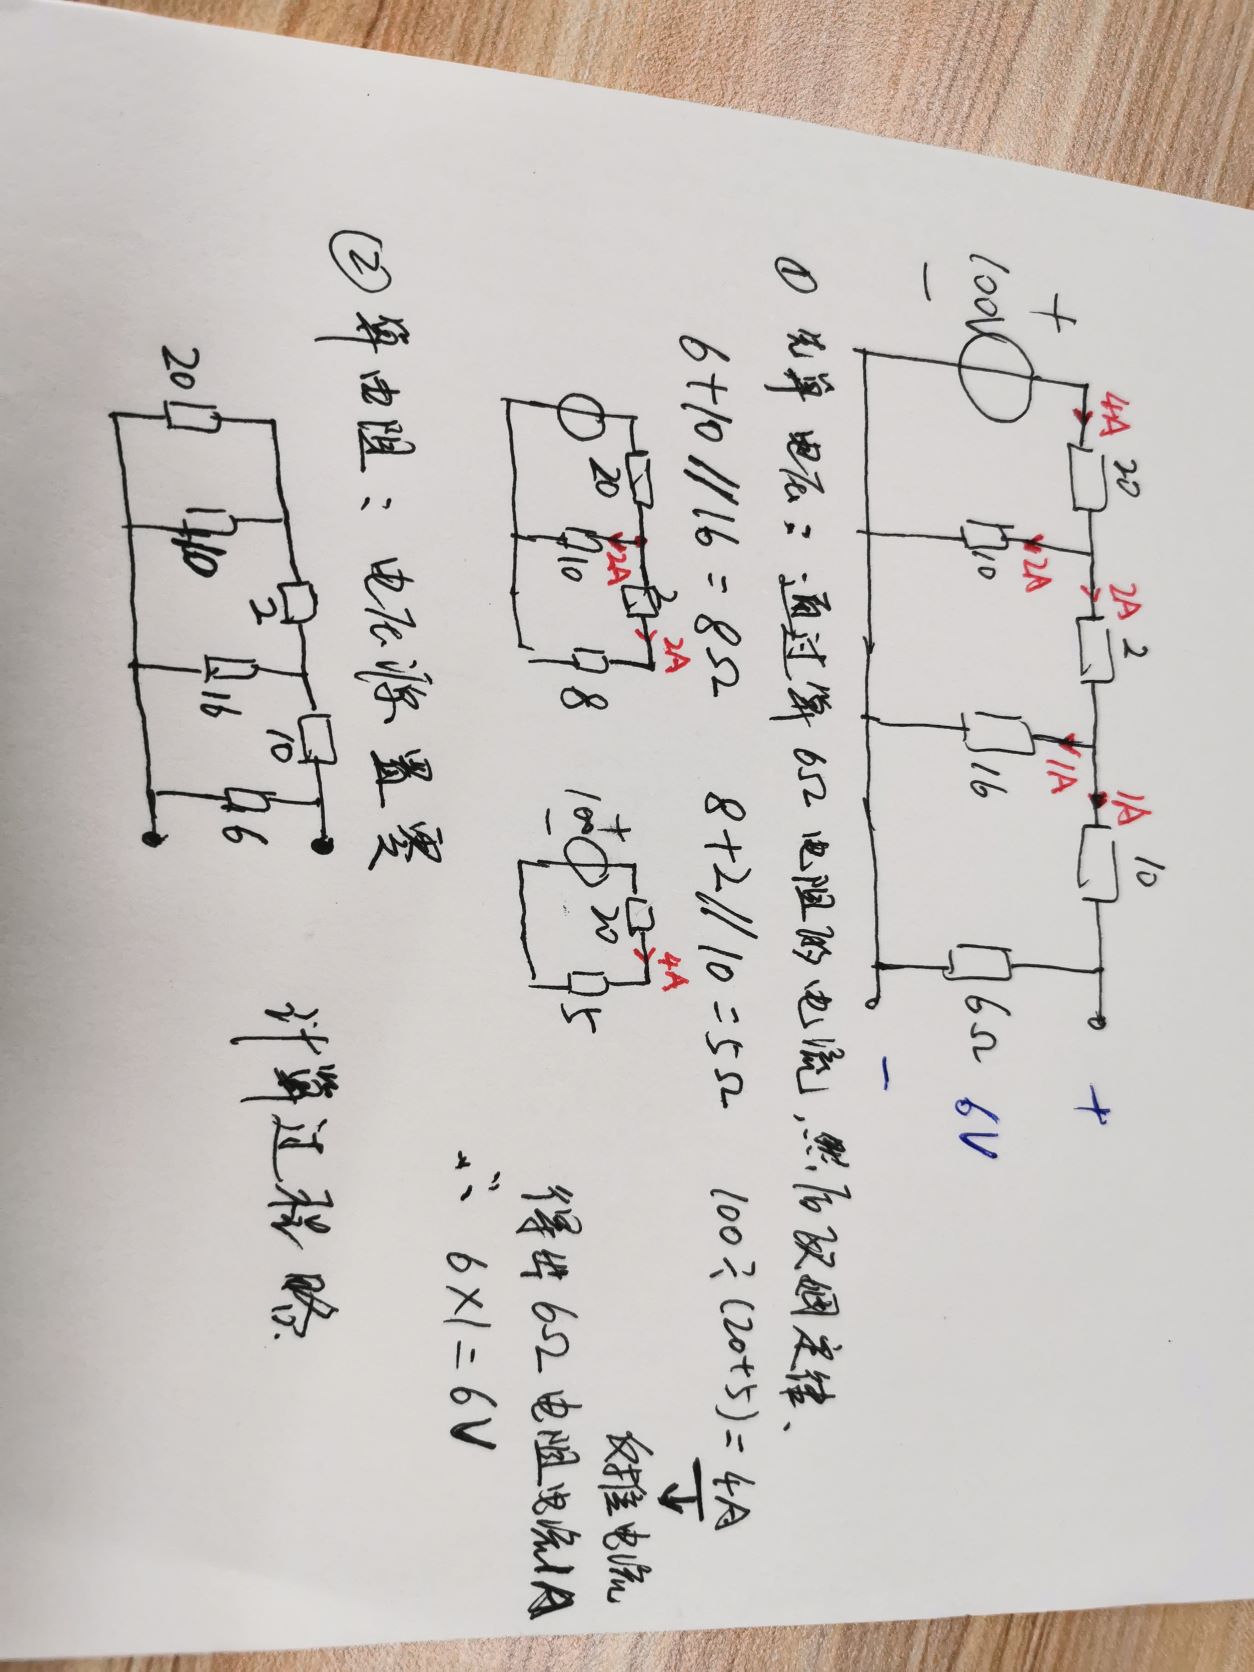 4A 20 2A 2 1A 10
+ 100V −
2A 10 1A 16 6Ω 6V + −
① 先算电压：通过算6Ω电阻的电流，然后欧姆定律、
6+10//16=8Ω 8+2//10=5Ω 100÷(20+5)=4A
反推电流
20 2A 10 2 2A 8
100 + − 20 4A 5
得出6Ω电阻电流1A
∴ 6×1=6V
② 算电阻：电压源置零
20 10 2 16 10 6
计算过程略.